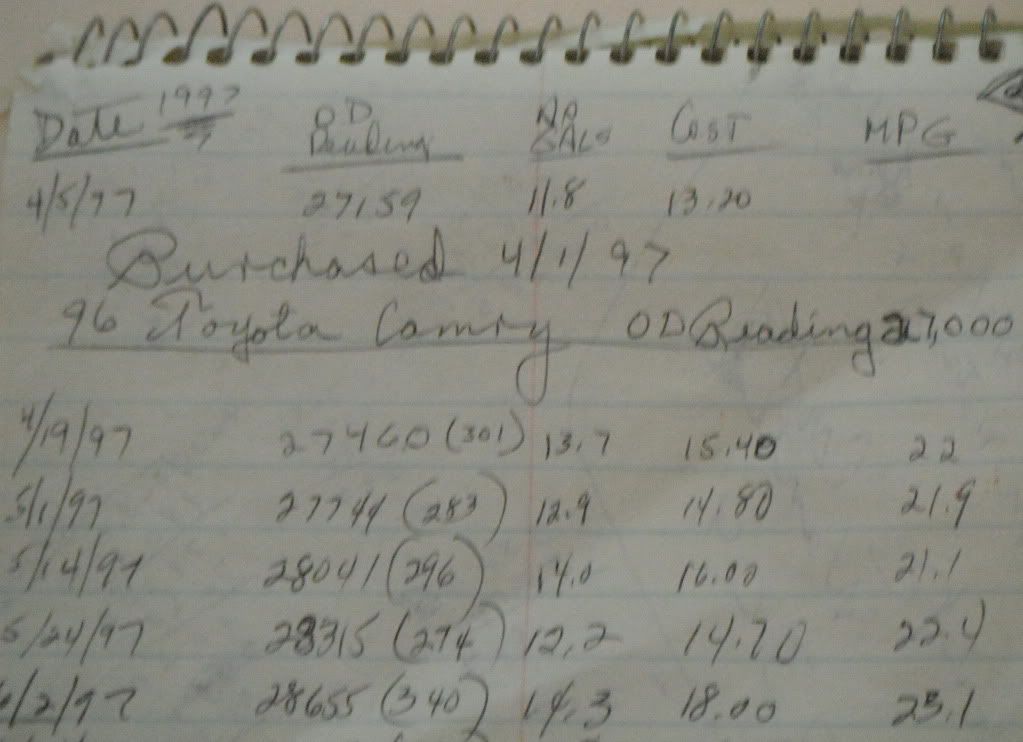 Date 1997 OD Reading No Gals Cost MPG
4/5/97 27159 11.8 13.20
Purchased 4/1/97
96 Toyota Camry OD Reading 27,000
4/19/97 27460 (301) 13.7 15.40 22
5/1/97 27744 (283) 12.9 14.80 21.9
5/14/97 28041 (296) 14.0 16.00 21.1
5/24/97 28315 (274) 12.2 14.70 22.4
6/2/97 28655 (340) 14.3 18.00 23.1